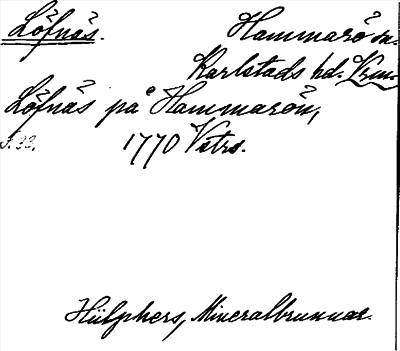 Löfnäs.
Hammarö sn.
Karlstads hd. Vrm.
Löfnäs på Hammarön,
s. 93. 1770 Vstrs.
Hülphers, Mineralbrunnar.